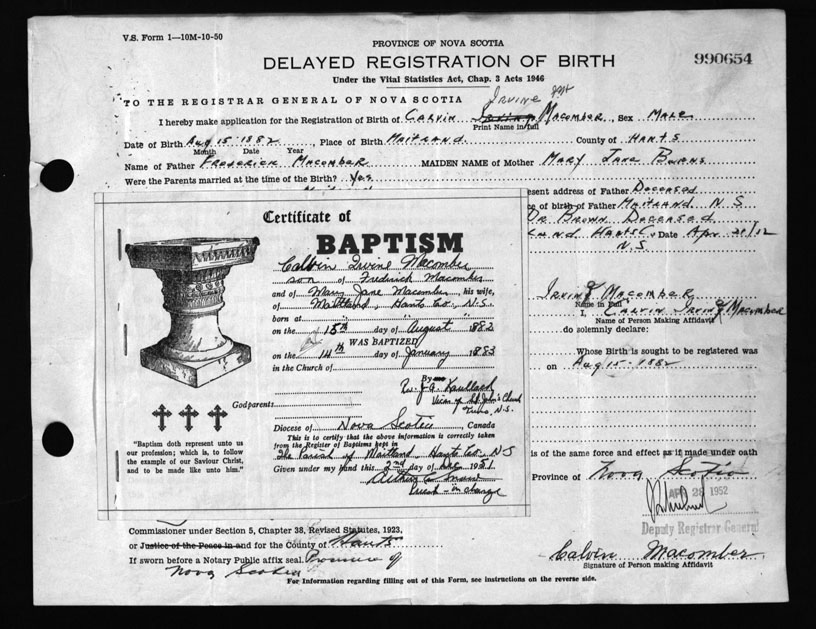 V.S. Form 1—10M-10-50
PROVINCE OF NOVA SCOTIA
990654
DELAYED REGISTRATION OF BIRTH
Under the Vital Statistics Act, Chap. 3 Acts 1946
TO THE REGISTRAR GENERAL OF NOVA SCOTIA
Irvine
I hereby make application for the Registration of Birth of Calvin Macomber, Sex Male
Print Name in full
Date of Birth Aug 15 1882, Place of Birth Maitland County of Hants
Month Date Year
Name of Father Frederick Macomber MAIDEN NAME of Mother Mary Jane
Were the Parents married at the time of the Birth? Yes
esent address of Father Deceased
ce of birth of Father Maitland N.S.
Dr Brown Deceased
Date Apr
N.S.
Certificate of
BAPTISM
Calvin Irvine Macomber
son of Fredrick Macomber
and of Mary Jane Macomber, his wife,
of Maitland, Hants Co., N.S.
born at " " "
on the 15th day of August 1882
WAS BAPTIZED
on the 14th day of January 1883
in the Church of
By
Rev. J.A. Kaulbach
Vicar of St. John's Church
Truro, N.S.
Godparents
Diocese of Nova Scotia, Canada
This is to certify that the above information is correctly taken
from the Register of Baptisms kept in
The Parish of Maitland, Hants Co., N.S
Given under my hand this 2nd day of 1951
Priest-in-charge
"Baptism doth represent unto us
our profession; which is, to follow
the example of our Saviour Christ,
and to be made like unto him."
Irving Macomber
Name in Full
I, Calvin Irving Macomber
Name of Person Making Affidavit
do solemnly declare:
Whose Birth is sought to be registered was
on Aug 15-1882
is of the same force and effect as if made under oath
Province of Nova Scotia
APR 28 1952
Deputy Registrar General
Commissioner under Section 5, Chapter 38, Revised Statutes, 1923,
or Justice of the Peace in and for the County of Hants
If sworn before a Notary Public affix seal. Province of
Nova Scotia
Calvin Macomber
Signature of Person making Affidavit
For Information regarding filling out of this Form, see instructions on the reverse side.